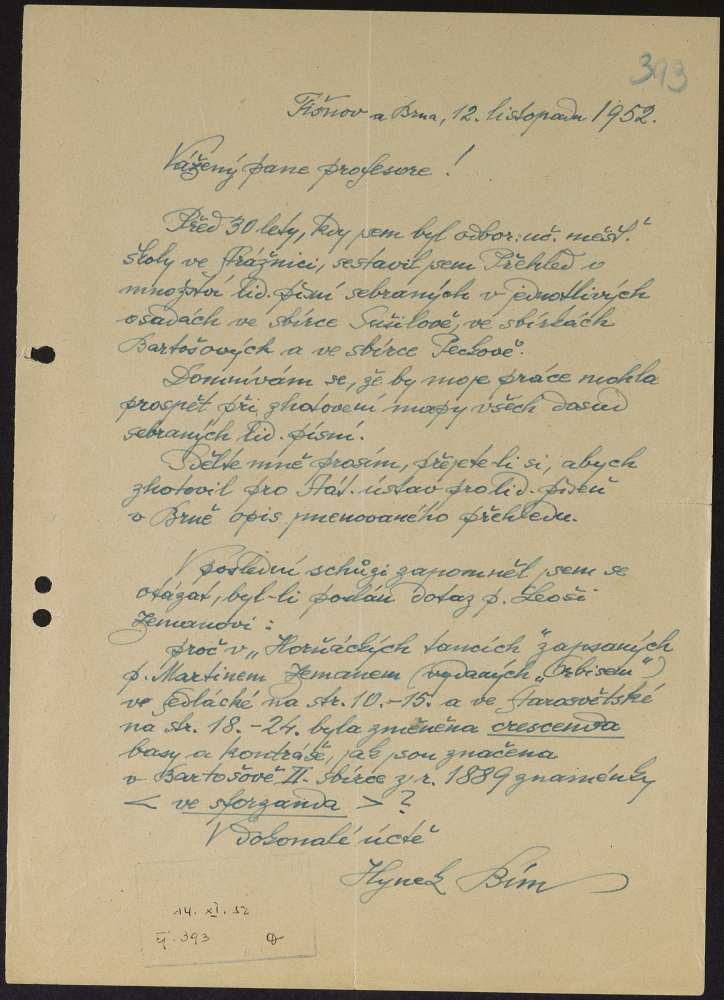 393
Tišnov u Brna, 12. listopadu 1952.
Vážený pane profesore!
Před 30 lety, kdy jsem byl odbor. uč. měšť.
školy ve Strážnici, sestavil jsem Přehled o
množství lid. písní sebraných v jednotlivých
osadách ve sbírce Sušilově, ve sbírkách
Bartošových a ve sbírce Peckově.
Domnívám se, že by moje práce mohla
prospět při zhotovení mapy všech dosud
sebraných lid. písní.
Sdělte mně prosím, přejete-li si, abych
zhotovil pro Stát. ústav pro lid. píseň
v Brně opis jmenovaného přehledu.
V poslední schůzi zapomněl jsem se
otázat, byl-li podán dotaz p. Leoši
Zemanovi:
proč v „Horňáckých tancích" zapsaných
p. Martinem Zemanem (vydaných „Orbisem")
ve Sedlácké na str. 10.-15. a ve Starosvětské
na str. 18.-24. byla změněna crescenda
basy a kontráše, jak jsou značena
v Bartošově II. sbírce z r. 1889 znaménky
< ve sforzanda > ?
V dokonalé úctě
Hynek Bím
14. XI. 52
čj. 393